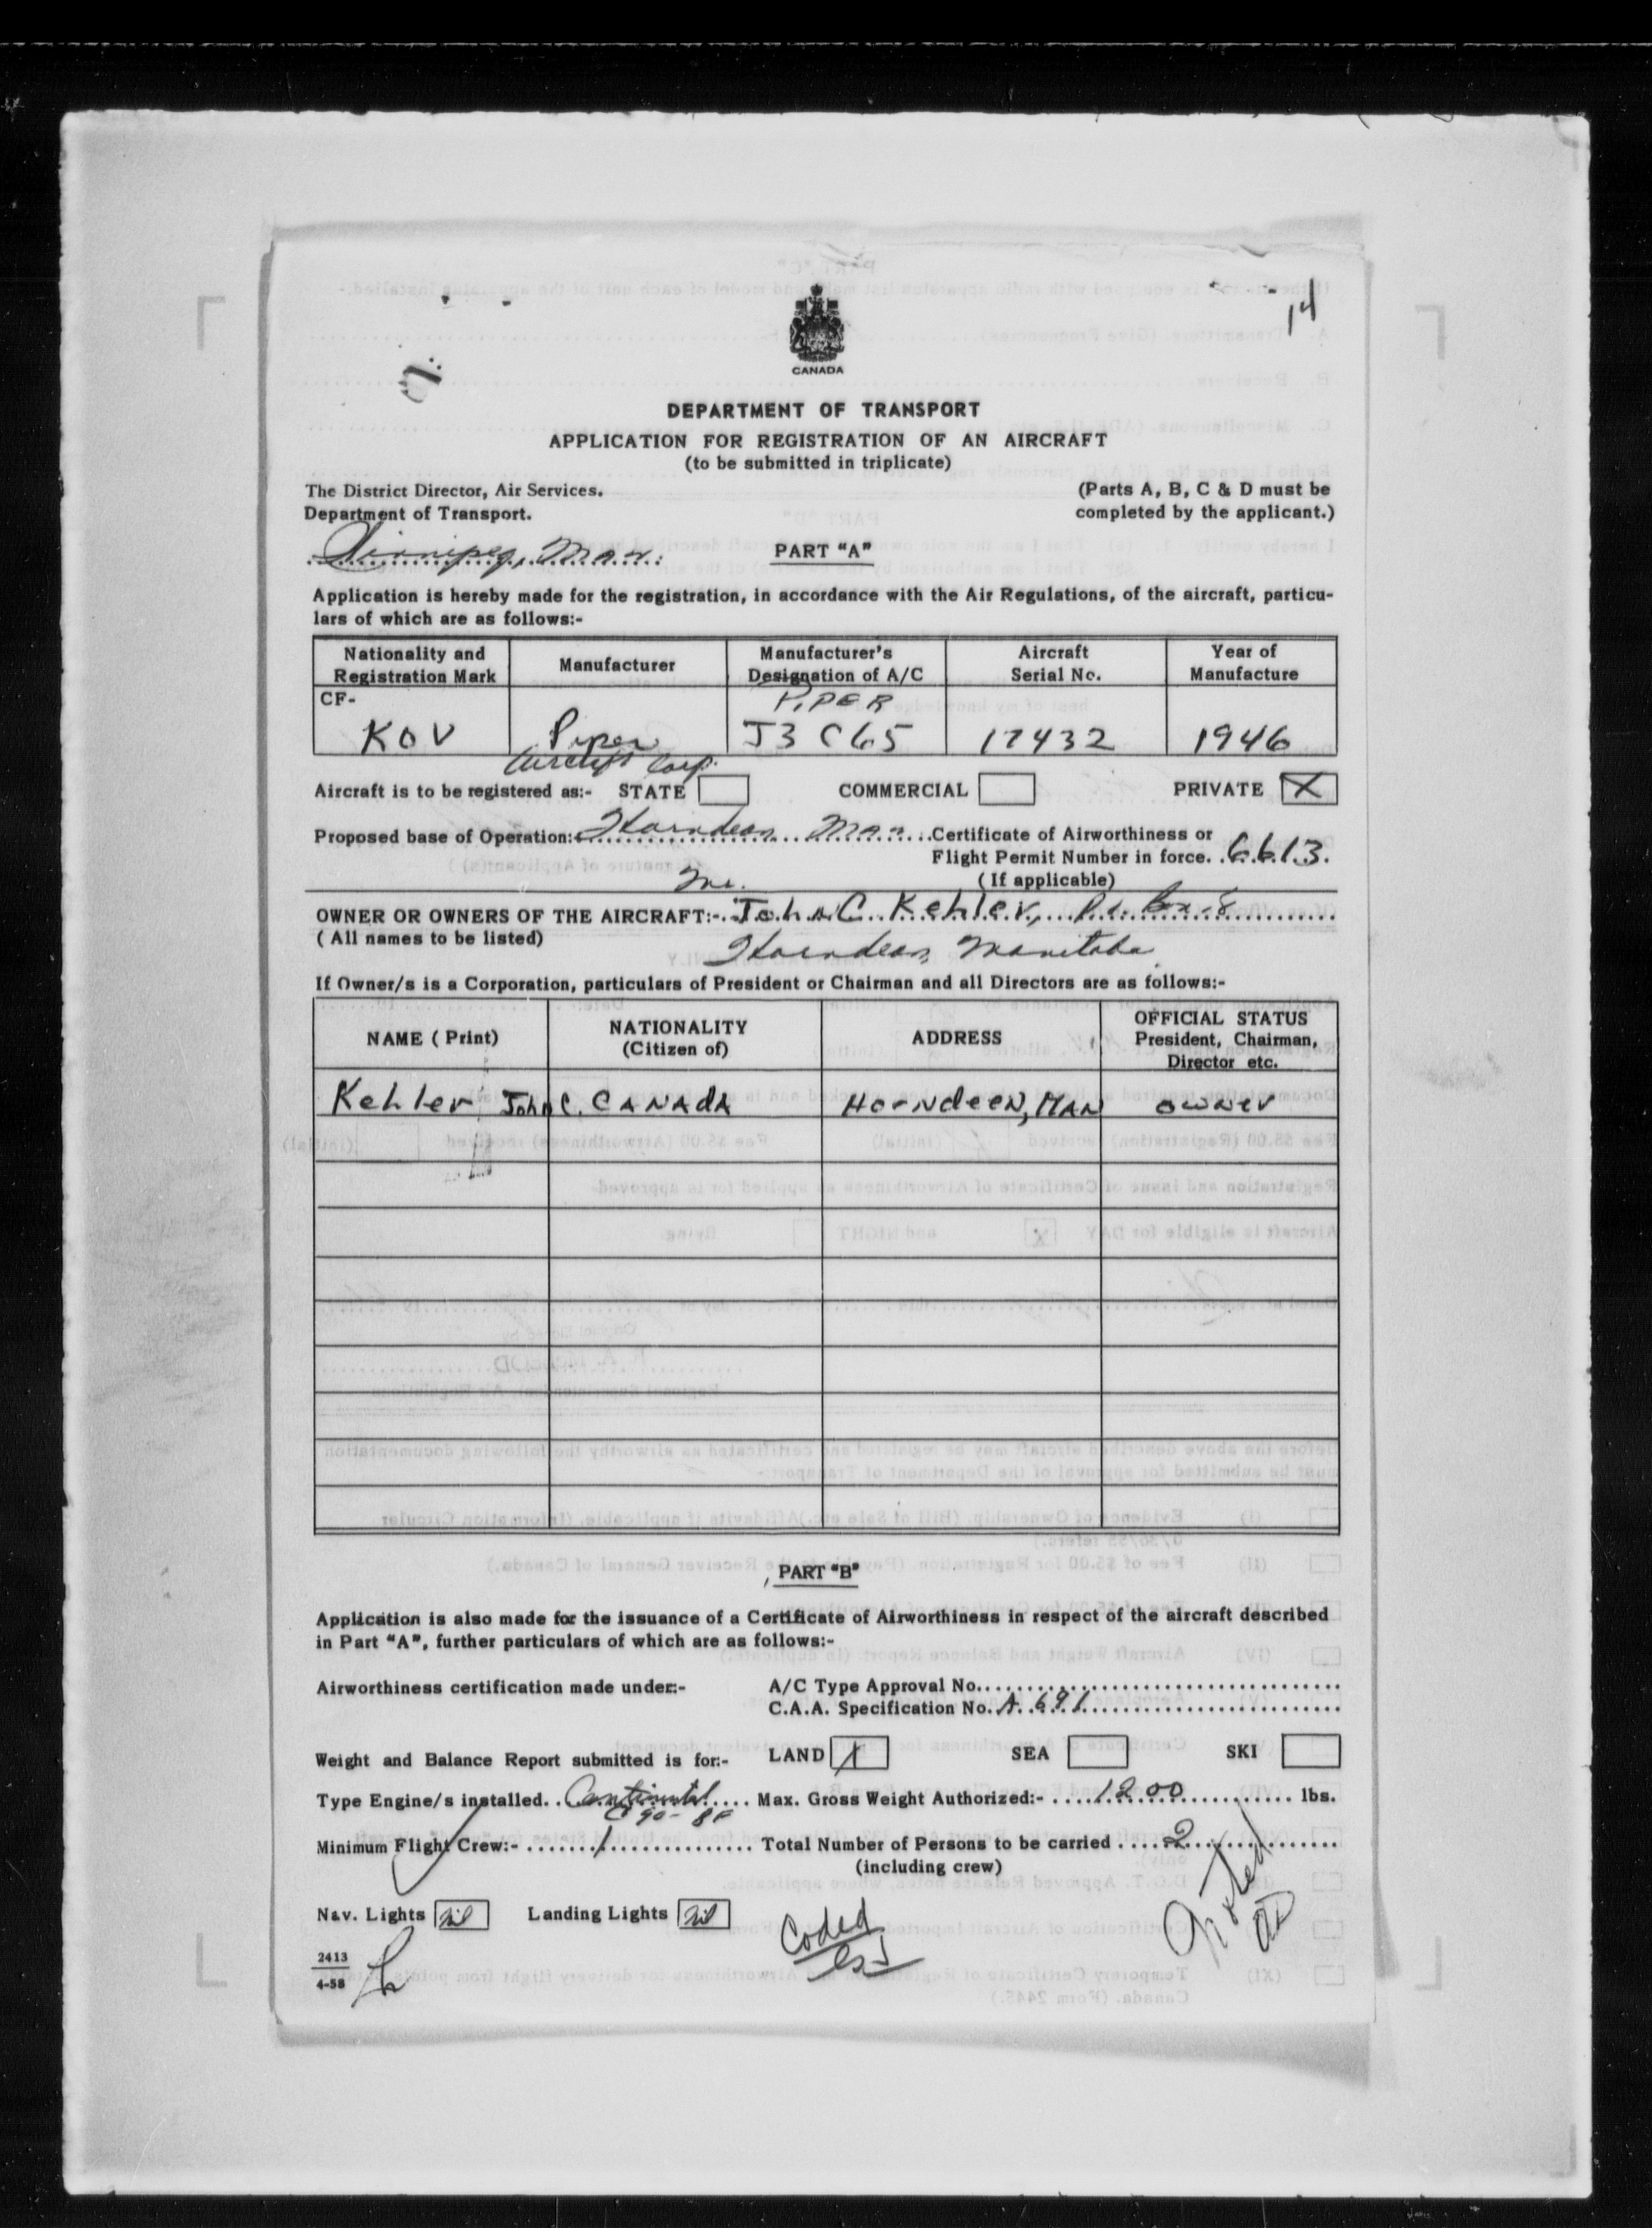 14
CANADA
DEPARTMENT OF TRANSPORT
APPLICATION FOR REGISTRATION OF AN AIRCRAFT
(to be submitted in triplicate)
The District Director, Air Services.
Department of Transport.
(Parts A, B, C & D must be
completed by the applicant.)
Winnipeg, Man.
PART "A"
Application is hereby made for the registration, in accordance with the Air Regulations, of the aircraft, particu-
lars of which are as follows:-
Nationality and Registration Mark Manufacturer Manufacturer's Designation of A/C Aircraft Serial No. Year of Manufacture
CF- PIPER
KOV Piper J3 C65 17432 1946
Aircraft Corp.
Aircraft is to be registered as:- STATE COMMERCIAL PRIVATE X
Proposed base of Operation: Horndean Man. Certificate of Airworthiness or
Flight Permit Number in force. 6613.
(If applicable)
Mr.
OWNER OR OWNERS OF THE AIRCRAFT:- John C. Kehler, Box 8
(All names to be listed)
Horndean, Manitoba
If Owner/s is a Corporation, particulars of President or Chairman and all Directors are as follows:-
NAME (Print) NATIONALITY (Citizen of) ADDRESS OFFICIAL STATUS President, Chairman, Director etc.
Kehler John C. CANAdA HorNdeeN, MAN owNer
PART "B"
Application is also made for the issuance of a Certificate of Airworthiness in respect of the aircraft described
in Part "A", further particulars of which are as follows:-
Airworthiness certification made under:- A/C Type Approval No.
C.A.A. Specification No. A. 691
Weight and Balance Report submitted is for:- LAND X SEA SKI
Type Engine/s installed. Continental Max. Gross Weight Authorized:- 1200 lbs.
C90-8F
Minimum Flight Crew:- 1 Total Number of Persons to be carried 2
(including crew)
Noted
Nav. Lights Nil Landing Lights Nil
Coded
2413
4-58